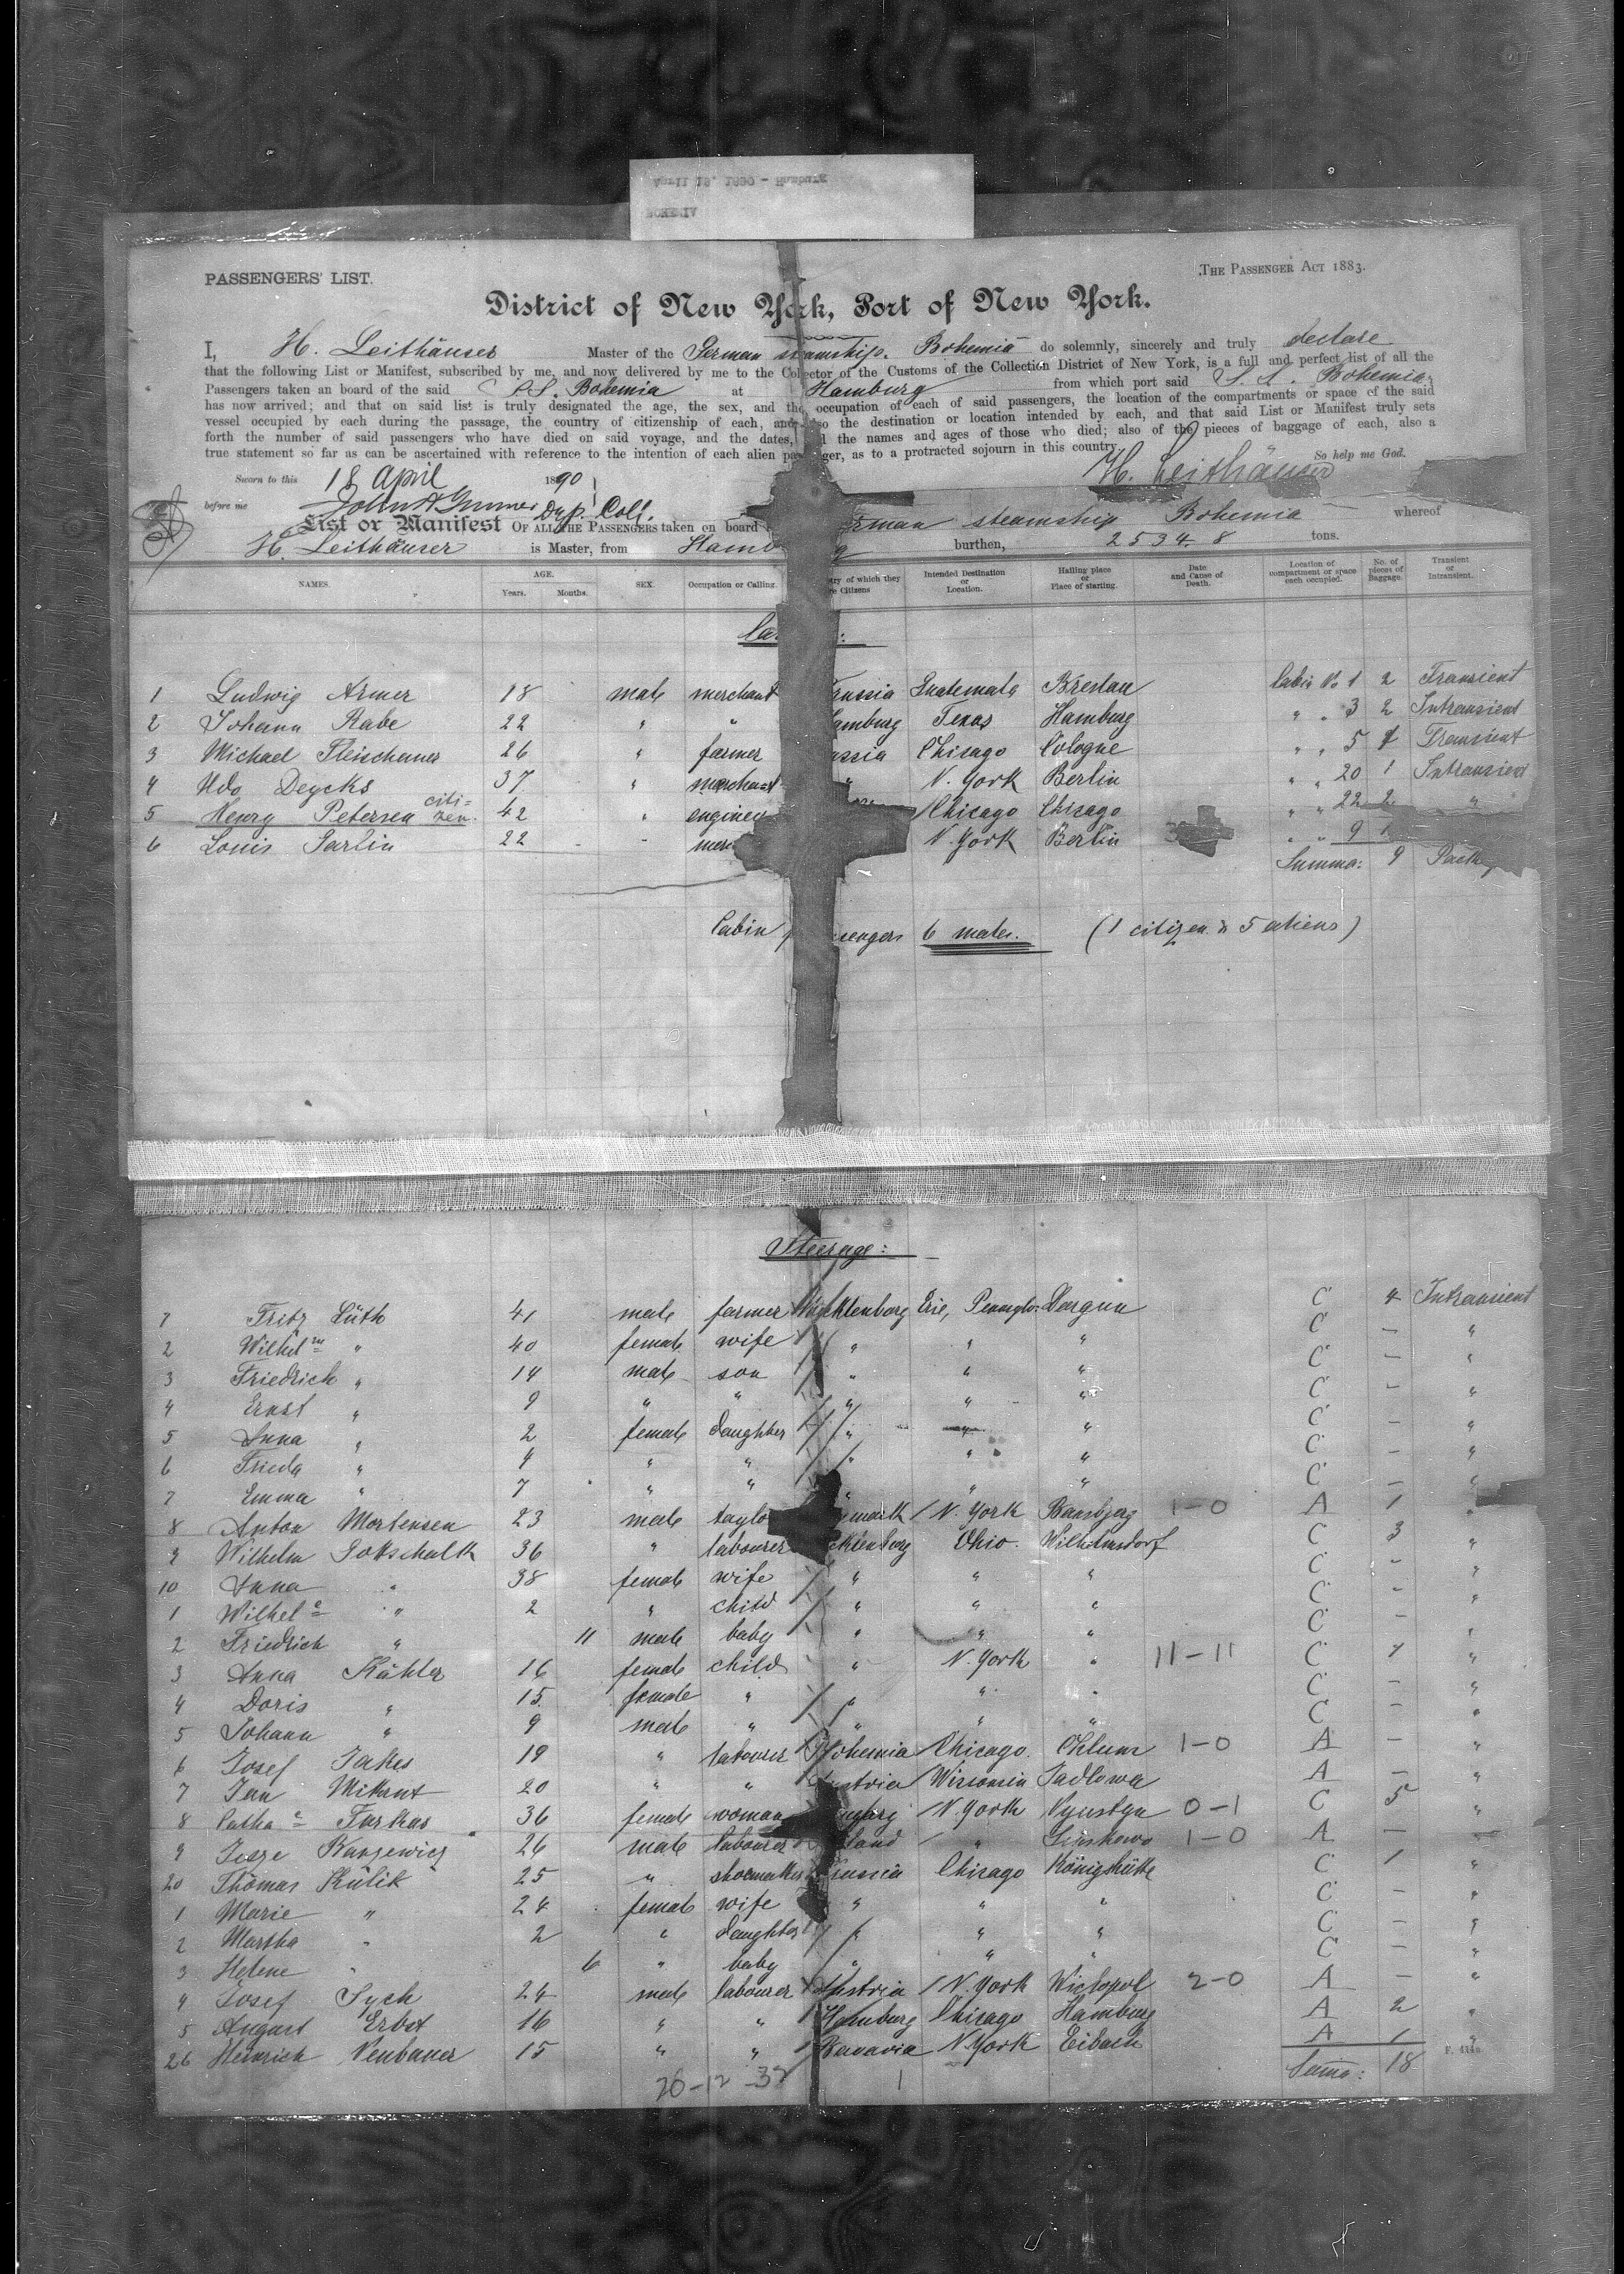 April 18. 1890 - Hamburg
BOHEMIA
PASSENGERS' LIST.
THE PASSENGER ACT 1883.
District of New York, Port of New York.
I, H. Leithäuser Master of the German steamship Bohemia do solemnly, sincerely and truly declare
that the following List or Manifest, subscribed by me, and now delivered by me to the Collector of the Customs of the Collection District of New York, is a full and perfect list of all the
Passengers taken an board of the said S.S. Bohemia at Hamburg from which port said S.S. Bohemia
has now arrived; and that on said list is truly designated the age, the sex, and the occupation of each of said passengers, the location of the compartments or space of the said
vessel occupied by each during the passage, the country of citizenship of each, and also the destination or location intended by each, and that said List or Manifest truly sets
forth the number of said passengers who have died on said voyage, and the dates, the names and ages of those who died; also of the pieces of baggage of each, also a
true statement so far as can be ascertained with reference to the intention of each alien passenger, as to a protracted sojourn in this country. So help me God.
Sworn to this 18 April 1890 H. Leithäuser
before me Dep. Coll.
List or Manifest OF ALL THE PASSENGERS taken on board German steamship Bohemia whereof
H. Leithäuser is Master, from Hamburg burthen, 2534.8 tons.
NAMES. AGE. Years. Months. SEX. Occupation or Calling. Country of which they are Citizens Intended Destination or Location. Hailing place or Place of starting. Date and Cause of Death. Location of compartment or space each occupied. No. of pieces of Baggage. Transient or Intransient.
1 Ludwig Armer 18 male merchant Prussia Guatemala Breslau Cabin No 1 2 Transient
2 Johann Rabe 22 " " Hamburg Texas Hamburg " " 3 2 Intransient
3 Michael Fleischauer 26 " farmer Cologne Chicago " " 5 1 Transient
4 Udo Deycks 37 " merchant " N. York Berlin " " 20 1 Intransient
5 Henry Petersen citizen. 42 " engineer Chicago Chicago " " 22 2 "
6 Louis 22 - - N. York Berlin " " 9 1
Summa: 9
Cabin passengers 6 males. (1 citizen & 5 aliens)
Steerage:
1 Fritz Lüth 41 male farmer Mecklenburg Erie, Pennsylv. Dargun C 4 Intransient
2 Wilhelm " 40 female wife " " " C - "
3 Friedrich " 14 male son " " " C - "
4 Ernst " 9 " " " " " C - "
5 Anna " 2 female daughter " " " C - "
6 Frieda " 4 " " " " " C - "
7 Emma " 7 " " " " " C - "
8 Anton Mortensen 23 male taylor Denmark N. York 1-0 A 1 "
9 Wilhelm Gotschalk 36 " labourer Mecklenburg Ohio. Wilhelmsdorf C 3 "
10 Anna " 38 female wife " " " C - "
1 Wilhel e " 2 " child " " " C - "
2 Friedrich " 11 male baby " " " C - "
3 Anna Kähler 16 female child " N. York " 11-11 C 1 "
4 Doris " 15 female " " " " C - "
5 Johann " 9 male " " " " C - "
6 Josef 19 " labourer Bohemia Chicago. Chlum 1-0 A - "
7 Jan 20 " " Austria Wisconsin Sadlowa A - "
8 Catha e Farkas 36 female woman Hungary N. York 0-1 C 5 "
9 26 male labourer Poland " 1-0 A - "
20 Thomas Kulik 25 " shoemaker Prussia Chicago Königshütte C 1 "
1 Marie " 24 female wife " " " C - "
2 Martha " 2 " daughter " " " C - "
3 Helene " 6 " baby " " " C - "
4 Josef Sych 24 male labourer Austria N. York Wielopol 2-0 A - "
5 August Erbst 16 " " Hamburg Chicago Hamburg A 2 "
26 Heinrich Neubauer 15 " " Bavaria N. York Eibach A 1 "
Suma: 18
20-12-32 1